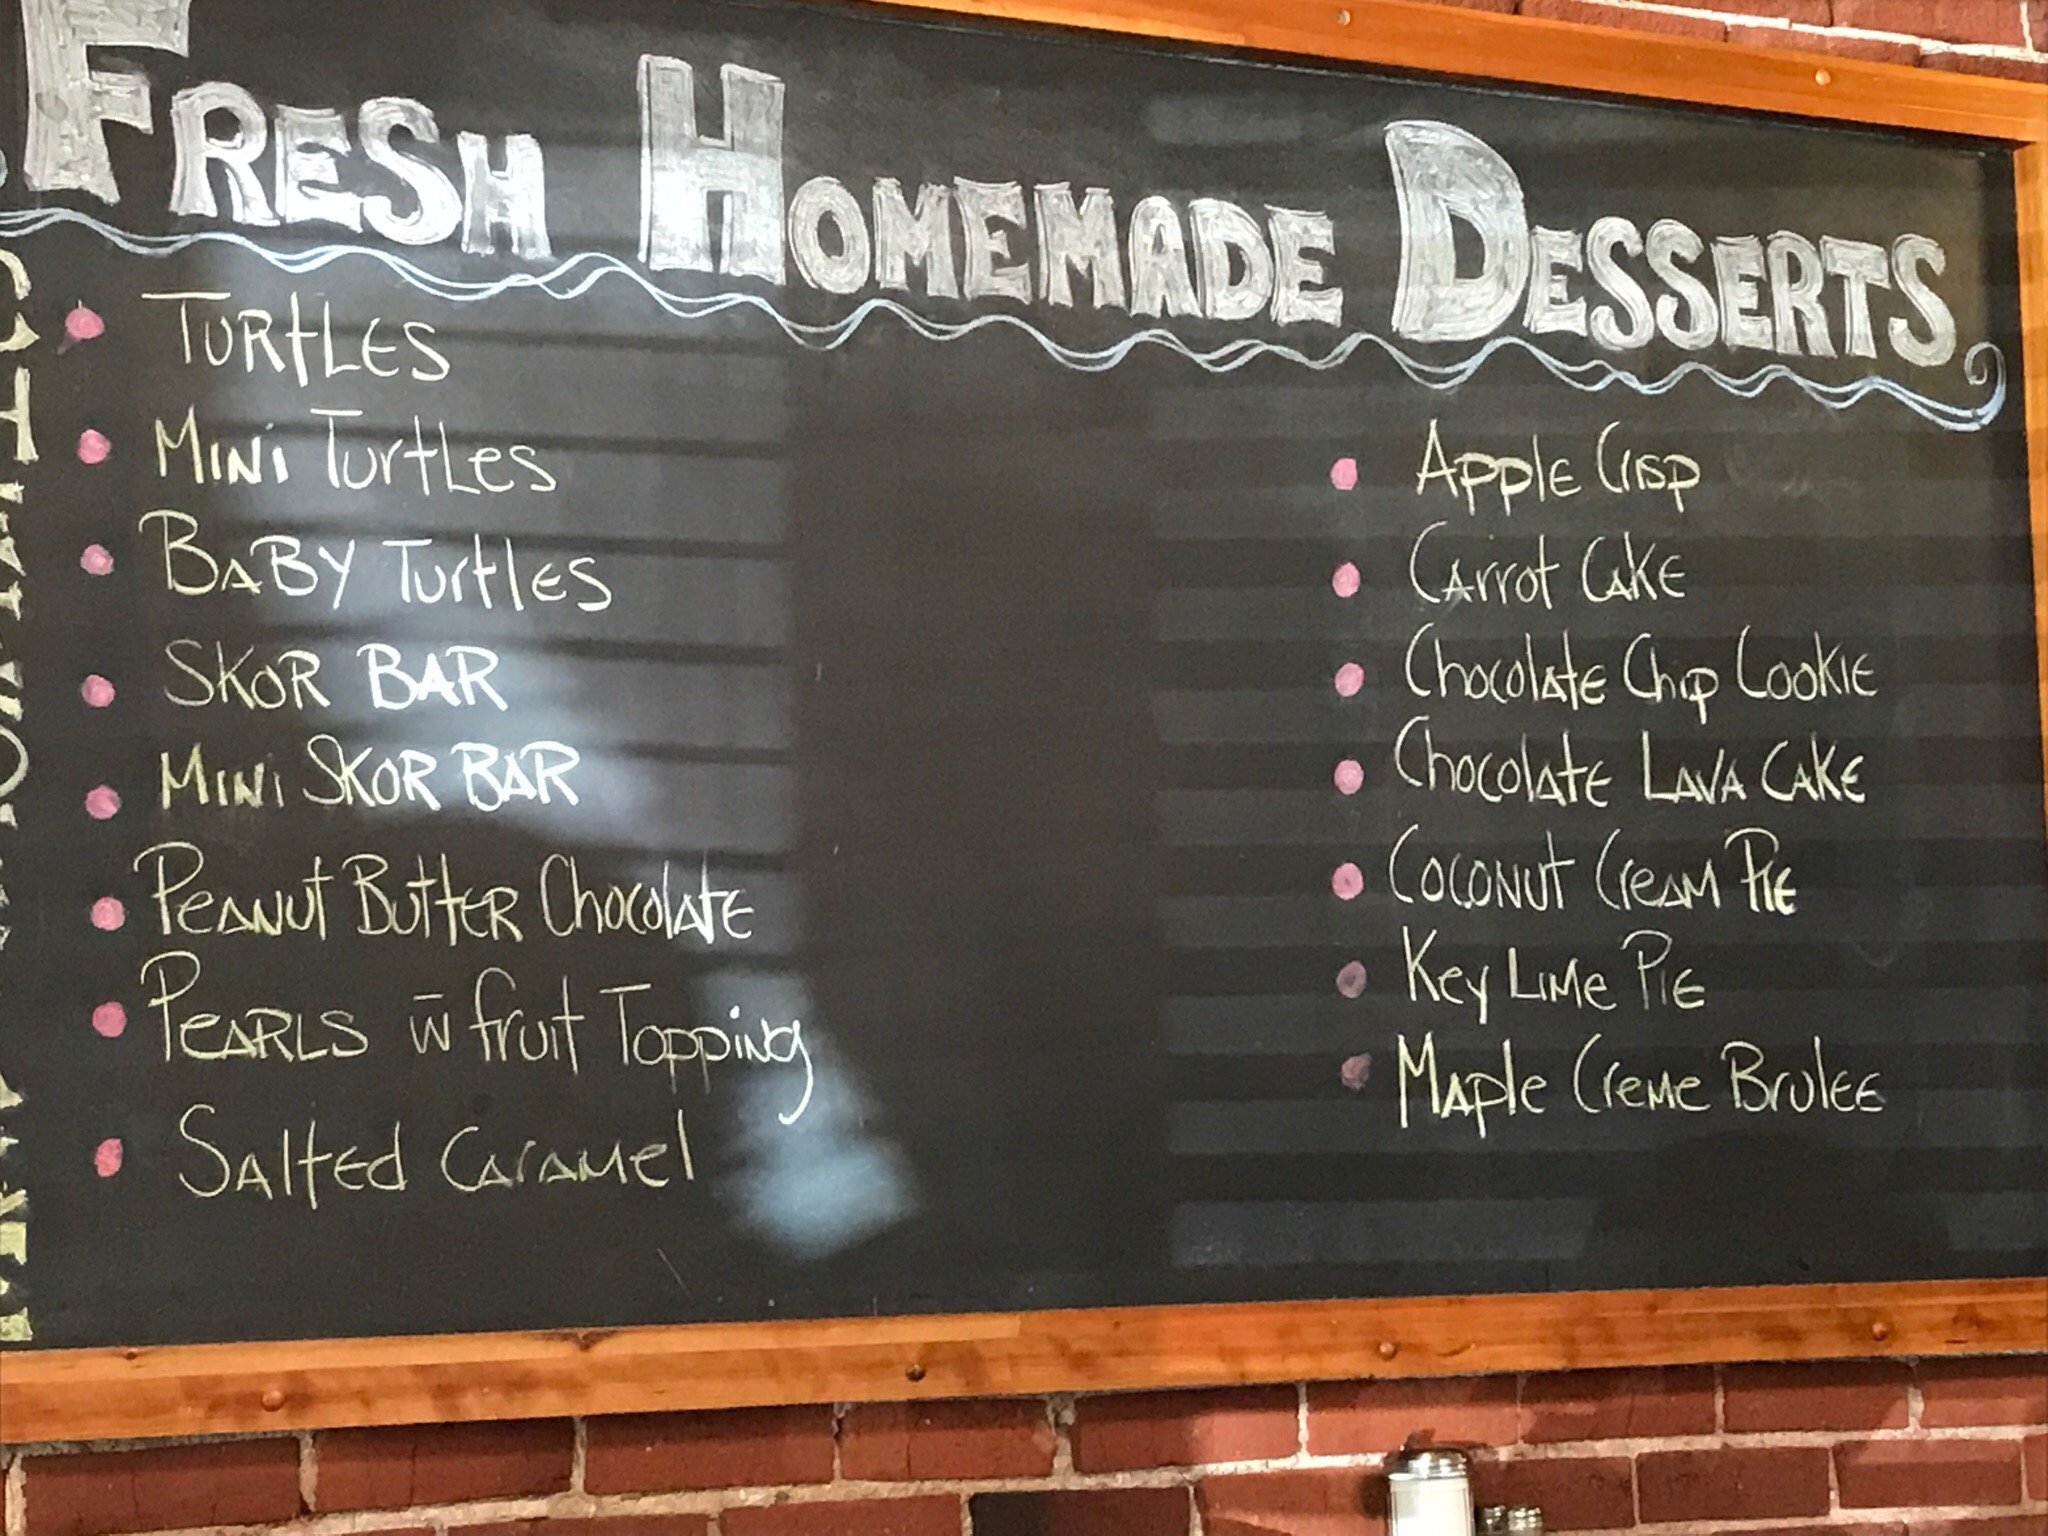 FRESH HOMEMADE DESSERTS
TURtLES
MINi TurtLes
BABY TurtlES
SKOR BAR
MINi SKOR BAR
PEANUT BUttER ChocolAtE
PEARLS w̄ fruit Topping
SAltEd CarAMEl
ApplE Crisp
CArrot CAKE
ChocolAtE Chip CookiE
ChocolAtE LAVA CAKE
COCONUT CreAM PiE
Key LiMe PiE
MAple CreMe BrulEE